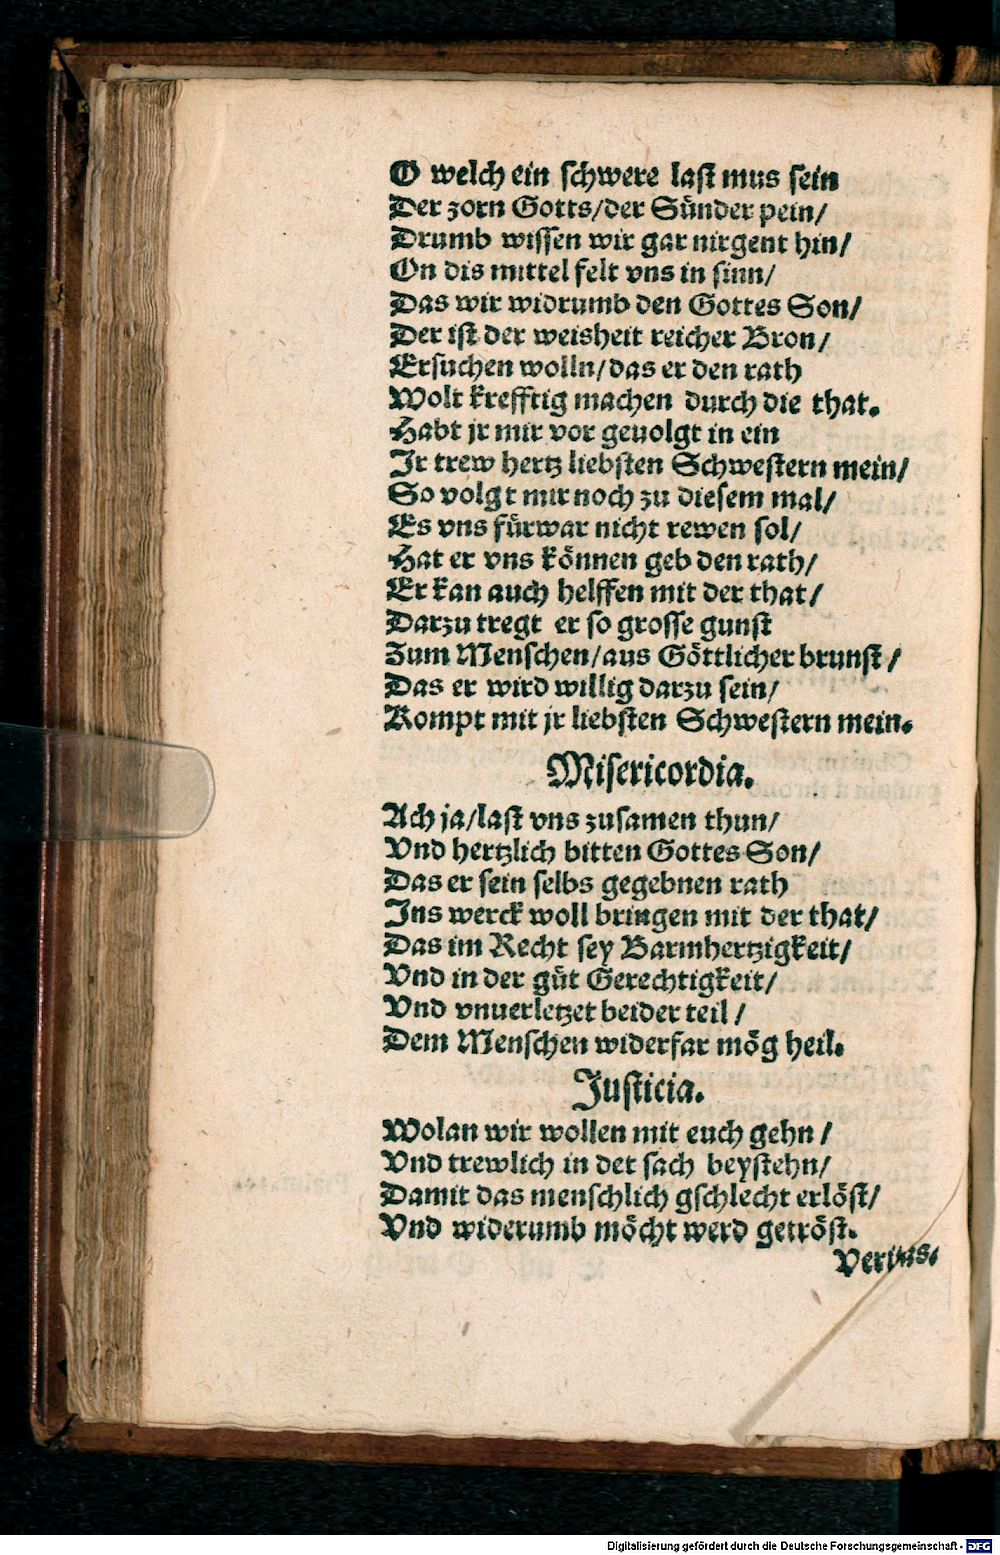 O welch ein schwere last mus sein
Der zorn Gotts/der Sünder pein/
Drumb wissen wir gar nirgent hin/
On dis mittel felt vns in sinn/
Das wir widrumb den Gottes Son/
Der ist der weisheit reicher Bron/
Ersuchen wolln/das er den rath
Wolt krefftig machen durch die that.
Habt jr mir vor geuolgt in ein
Ir trew hertz liebsten Schwestern mein/
So volgt mir noch zu diesem mal/
Es vns fürwar nicht rewen sol/
Hat er vns können geb den rath/
Er kan auch helffen mit der that/
Darzu tregt er so grosse gunst
Zum Menschen/aus Göttlicher brunst/
Das er wird willig darzu sein/
Kompt mit jr liebsten Schwestern mein.
Misericordia.
Ach ja/last vns zusamen thun/
Vnd hertzlich bitten Gottes Son/
Das er sein selbs gegebnen rath
Ins werck woll bringen mit der that/
Das im Recht sey Barmhertzigkeit/
Vnd in der güt Gerechtigkeit/
Vnd vnuerletzet beider teil/
Dem Menschen widerfar mög heil.
Justicia.
Wolan wir wollen mit euch gehn/
Vnd trewlich in det sach beystehn/
Damit das menschlich gschlecht erlöst/
Vnd widerumb möcht werd getröst.
Veritas.
Digitalisierung gefördert durch die Deutsche Forschungsgemeinschaft - DFG